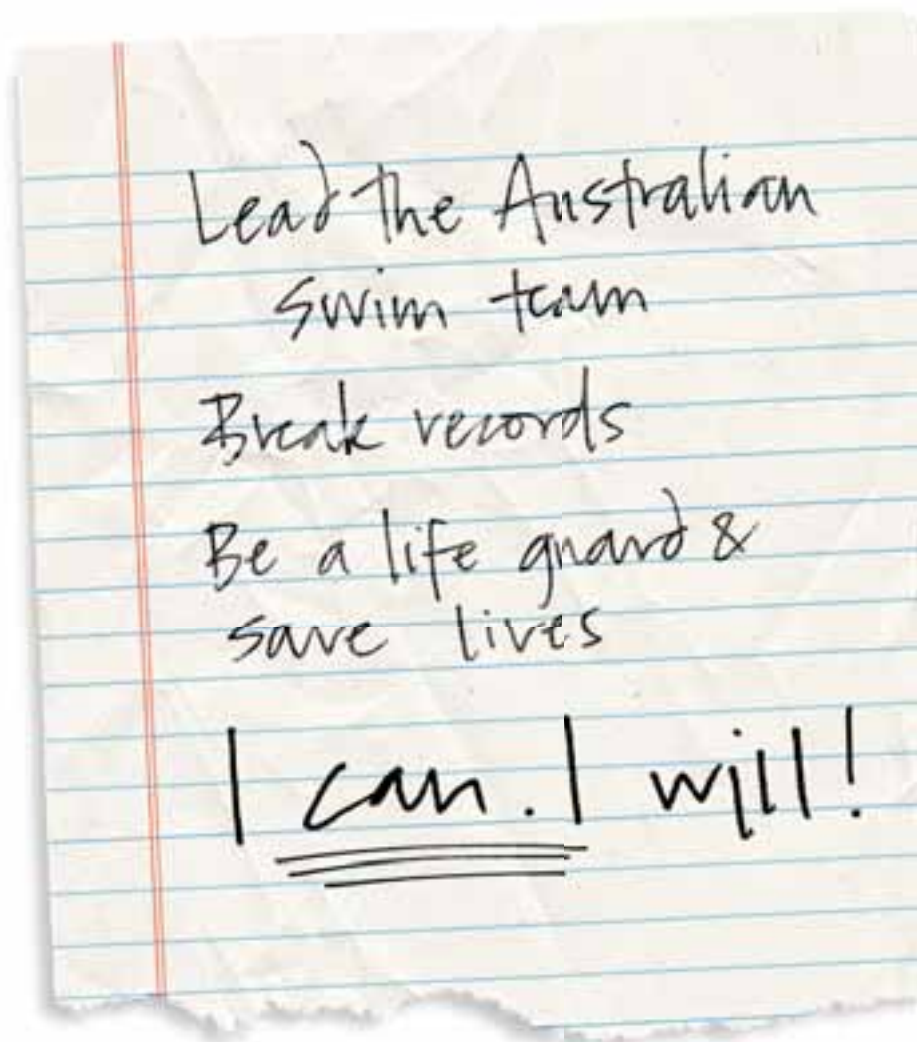 Lead the Australian
swim team
Break records
Be a life guard &
save lives
I can. I will!